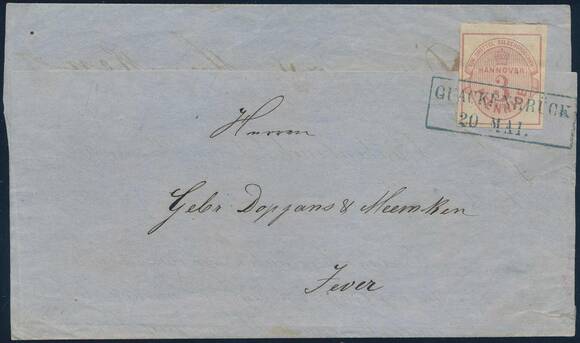 HANNOVER
3
PFENNIGE
QUACKENBRÜCK
20 MAI.
Herren
Gebr Doppans & Meemken
Jever